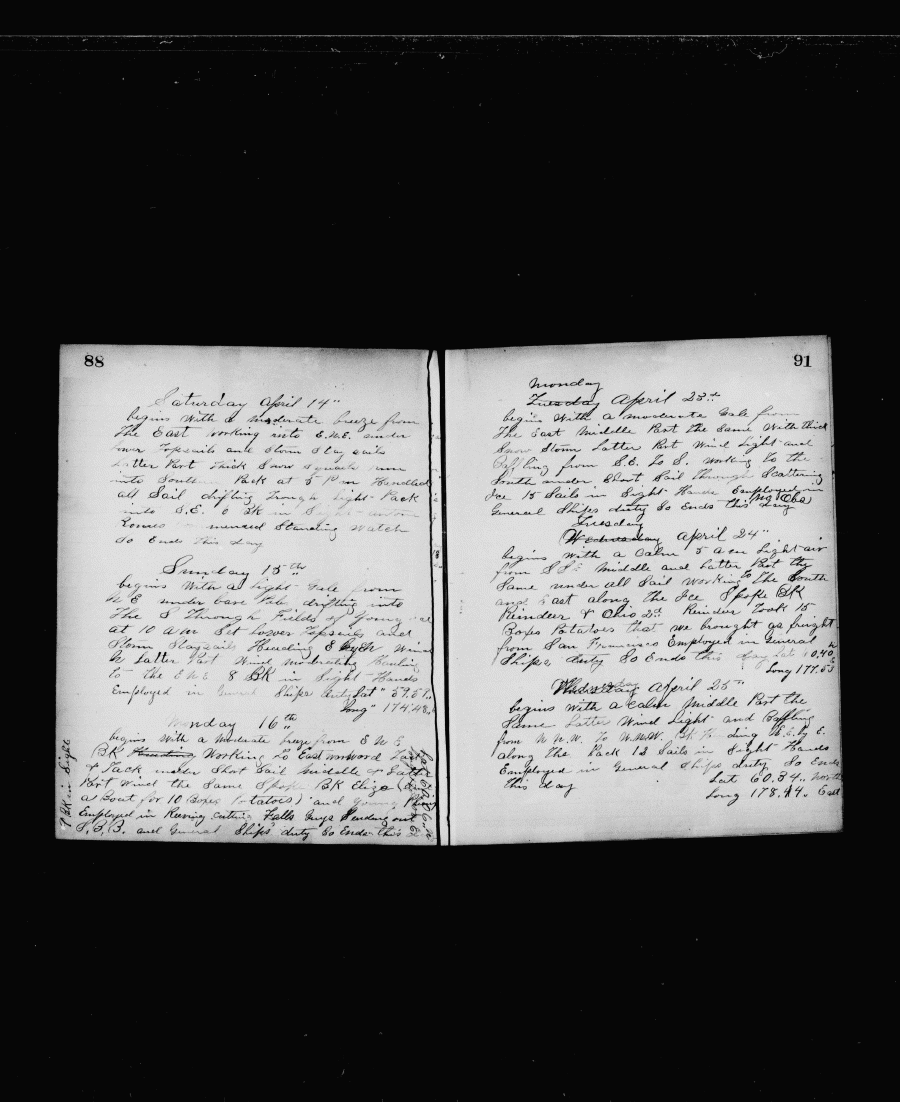 88
Saturday April 14"
begins with a moderate breeze from
The East working into E.N.E. under
lower Topsails and Storm Stay sails
Latter Part Thick Snow Squalls run
into Southern Pack at 5 P.m Handled
all Sail drifting Trough light Pack
into S.E. 6 BK in Sight
commenced Standing Watch
So Ends This day
Sunday 15th
begins With a light Gale from
N E under bare Pole drifting into
The S Through Fields of Young ice
at 10 a m Set Lower Topsails and
Storm Staysails Heading E by N Wind
N Latter Part Wind moderating Hauling
to the E N E 8 BK in Sight Hands
Employed in General Ships duty Lat" 59.51
Long" 174.48
Monday 16th
begins With a moderate breeze from E N E
BK Heading Working To Eastward Tack
& Tack under Short Sail middle & Latter
Part Wind the Same Spoke BK Eliza
a Boat for 10 Boxes Potatoes) and young
Employed in Reeving Cutting Falls Guys Sending out
S.B.B. and General Ships duty So Ends this
9 BK in Sight
91
Monday
Tuesday April 23rd
begins With a moderate Gale from
The East middle Part The Same With thick
Snow Storm Latter Part Wind Light and
Baffling from S.E. To S. Working To the
South under Short Sail Through Scattering
Ice 15 Sails in Sight Hands Employed in
General Ships duty So Ends this day
No Obs
Tuesday
Wednesday April 24"
begins With a Calm 5 a m Light air
from S S E middle and Latter Part the
Same under all Sail Working To The South
and East along the Ice Spoke BK
Reindeer & Ohio 2nd Reindeer Took 15
Boxes Potatoes that we brought as freight
from San Francisco Employed in General
Ships duty So Ends this day Lat 60,40
Long 177.53
Wednesday April 25"
begins With a Calm middle Part the
Same Latter Wind Light and Baffling
from N.N.W. To W.N.W. BK Heading N.E. by E.
along the Pack 12 Sails in Sight Hands
Employed in General Ships duty So Ends
this day Lat 60.34 North
Long 178.14 East